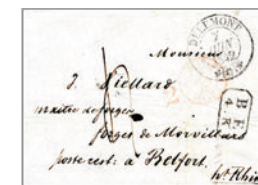 DELEMONT
7
JUIN
Monsieur
J. Viellard
maître de forges
forges de Morvillard
B.F.
4 R.
poste rest: à Belfort.
ht Rhin